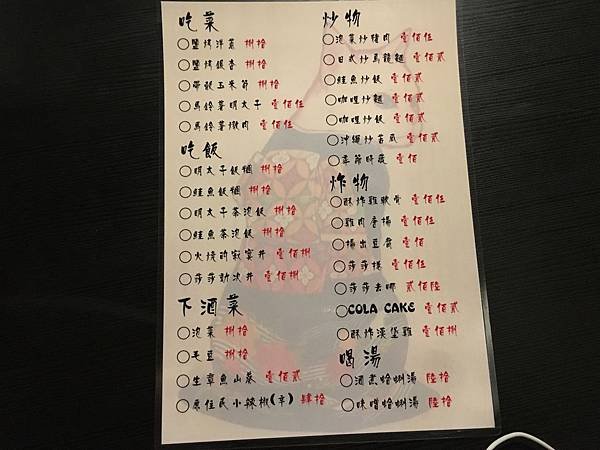 吃菜
鹽烤洋蔥 捌拾
鹽烤銀杏 捌拾
帶殼玉米筍 捌拾
馬鈴薯明太子 壹佰伍
馬鈴薯燉肉 壹佰伍
吃飯
明太子飯糰 捌拾
鮭魚飯糰 捌拾
明太子茶泡飯 捌拾
鮭魚茶泡飯 捌拾
火燒的寂寞丼 壹佰捌
莎莎勁次丼 壹佰捌
下酒菜
泡菜 捌拾
毛豆 捌拾
生章魚山葵 壹佰貳
原住民小辣椒(辛) 肆拾
炒物
泡菜炒豬肉 壹佰伍
日式炒烏龍麵 壹佰貳
鮭魚炒飯 壹佰貳
咖哩炒麵 壹佰貳
咖哩炒飯 壹佰貳
沖繩炒苦瓜 壹佰貳
季節時蔬 壹佰
炸物
酥炸雞軟骨 壹佰伍
雞肉唐揚 壹佰伍
揚出豆腐 壹佰
莎莎揚 壹佰伍
莎莎去哪 貳佰陸
COLA CAKE 壹佰貳
酥炸漢堡雞 壹佰捌
喝湯
酒蒸蛤蜊湯 陸拾
味噌蛤蜊湯 陸拾